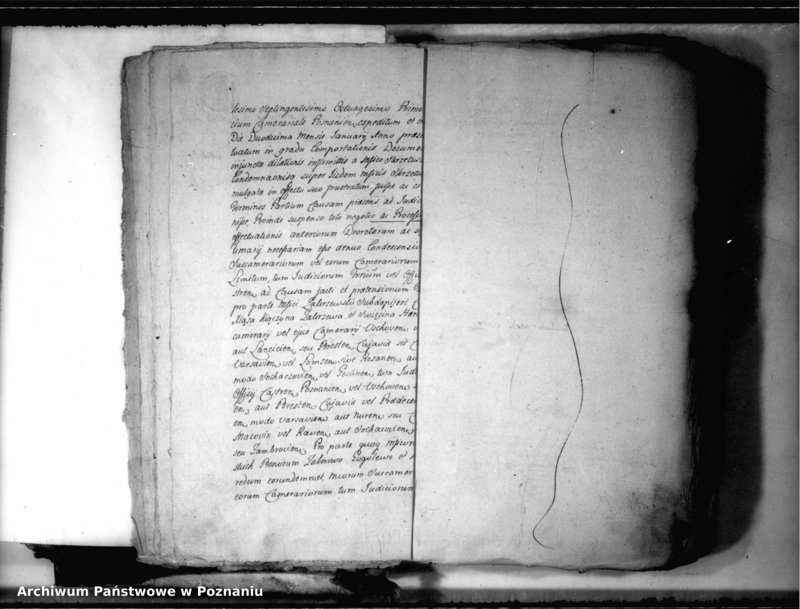 lesimo Septingentesimo Octuagesimo Primo
tium Camerariale Posnanien, expeditum et
Die Duodecima Mensis January Anno præs
tuatum in gradu Comportationis Docume
injunctæ dilationis infirmitis a
Condemnaonisq super eisdem
mulgata in effectu suo frustratum fuisse ac
Terminis Partium Causam præsens ad Judic
nisse, Proinde suspenso toto negotio ac Processu
effectuationis anteriorum Decretarum ac
necessariam esse denuo Condescensi
Succamerariorum vel eorum Camerariorum
Limitum, tum Judiciorum Terrium vel Offi
stren, ad Causam facti et prætensionum
pro parte Mfici Zakrzewskij Subdapiferi
Zakrzewa et
camerarij vel ejus Camerarij Wschoven
aut Lancicien, seu Bresten, Cujaviæ sic
Varsavien, vel Lomzen, sive Rosanen, au
modo Sochaczovien, vel Gostinen, tum Jud
Officij Castren, Posnanien, vel Wschoven
en, aut Bresten, Cujaviæ vel Prædecen
en, modo Varsavien, aut Nuren, seu
Masoviæ vel Raven, aut Sochaczovien,
seu Zambrovien, Pro parte quoq
Bonorum Zaborowo Gogolewo et
redum eorundemmet, suorum Succamer
eorum Camerariorum tum Judiciorum
Archiwum Państwowe w Poznaniu